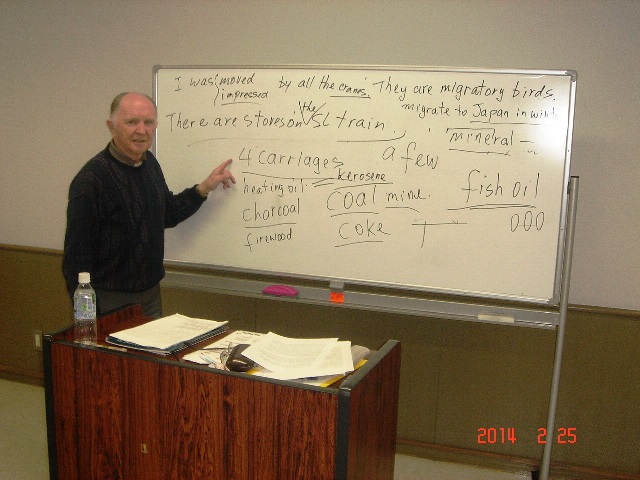 I was moved by all the cranes. They are migratory birds.
impressed
migrate to Japan in wint
There are stores on the SL train.
mineral
4 carriages a few
kerosene
heating oil
coal mine. fish oil
chorcoal
coke 000
firewood
2014 2 25